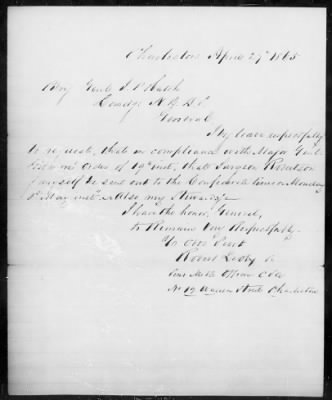 Charleston April 29th 1865
Brig Genl J. P. Hatch
Comdg N. D. D. S.
General
I beg leave respectfully
to request, that in compliance with Major Genl
order of 19th inst, that Surgeon
& myself be sent out to the Confederate lines on Monday
1st May inst. Also my
I have the honor, General,
to Remain Very Respectfully
Yr Obt Servt
Robert
Officer C S A
No 19 Warren Street Charleston